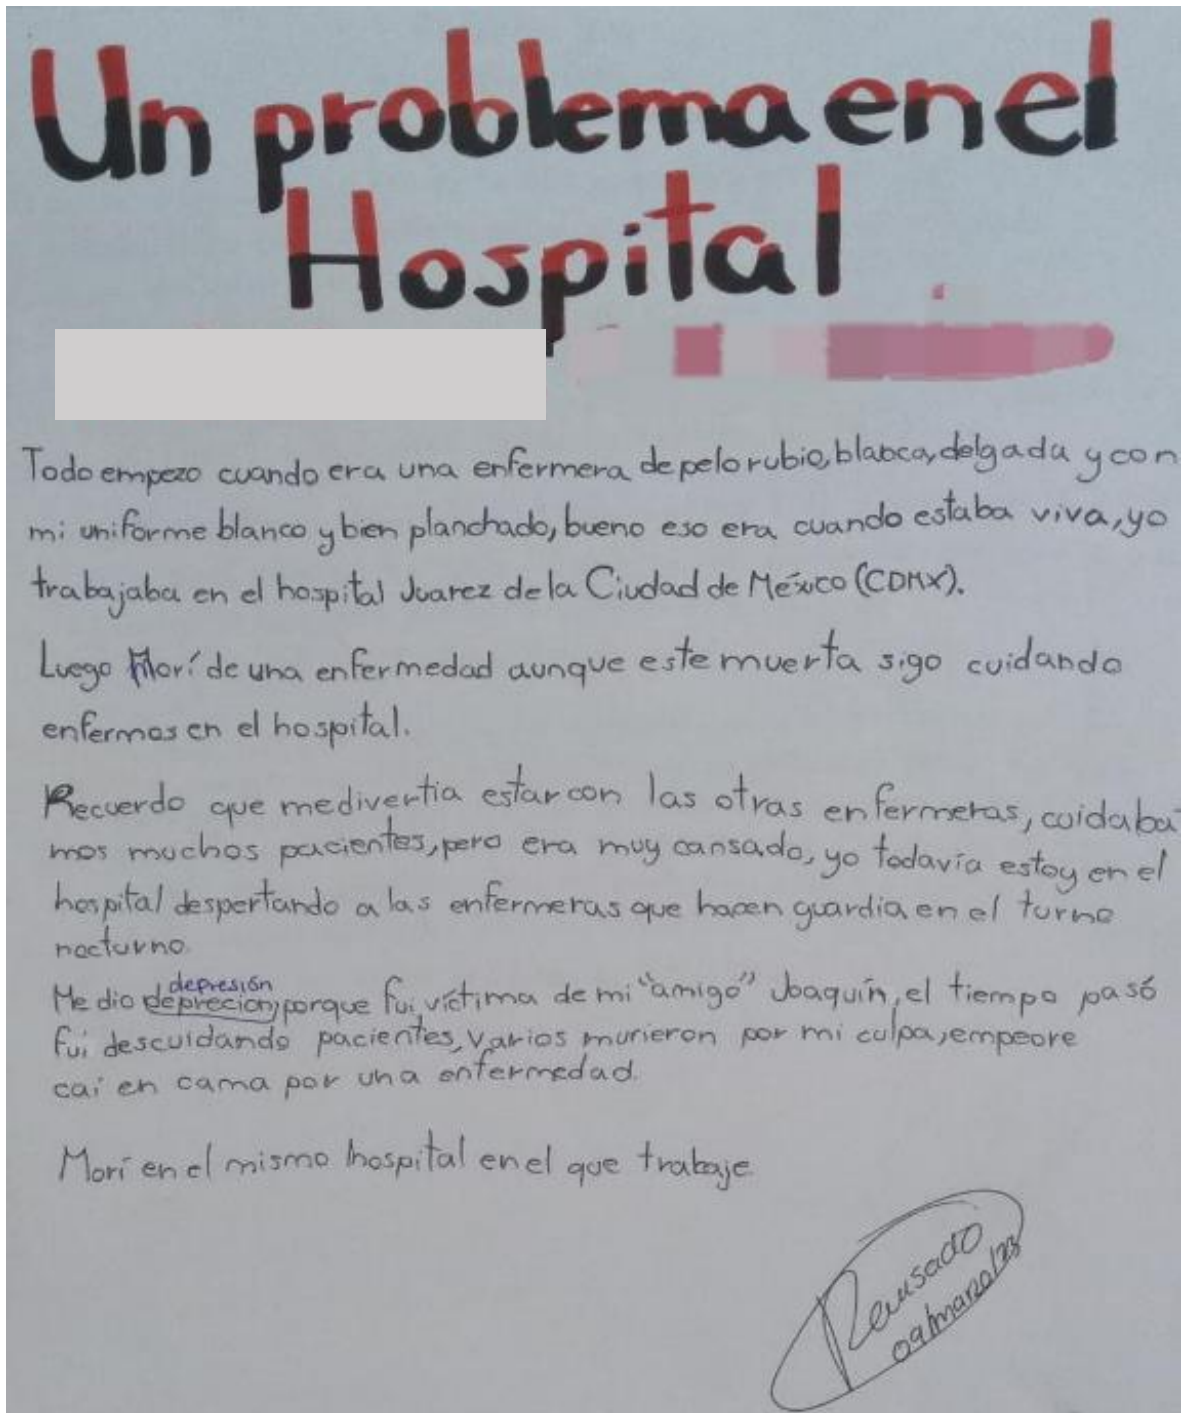 Un problema en el
Hospital
Todo empezo cuando era una enfermera de pelo rubio, blabca, delgada y con
mi uniforme blanco y bien planchado, bueno eso era cuando estaba viva, yo
trabajaba en el hospital Juarez de la Ciudad de México (CDMX).
Luego Morí de una enfermedad aunque este muerta sigo cuidando
enfermos en el hospital.
Recuerdo que me divertia estar con las otras enfermeras, cuidaba-
mos muchos pacientes, pero era muy cansado, yo todavía estoy en el
hospital despertando a las enfermeras que hacen guardia en el turno
nocturno.
depresión
Me dio deprecion, porque fui víctima de mi "amigo" Joaquín, el tiempo pasó
fui descuidando pacientes, varios murieron por mi culpa, empeore
cai en cama por una enfermedad.
Morí en el mismo hospital en el que trabaje.
Revisado
09/marzo/23